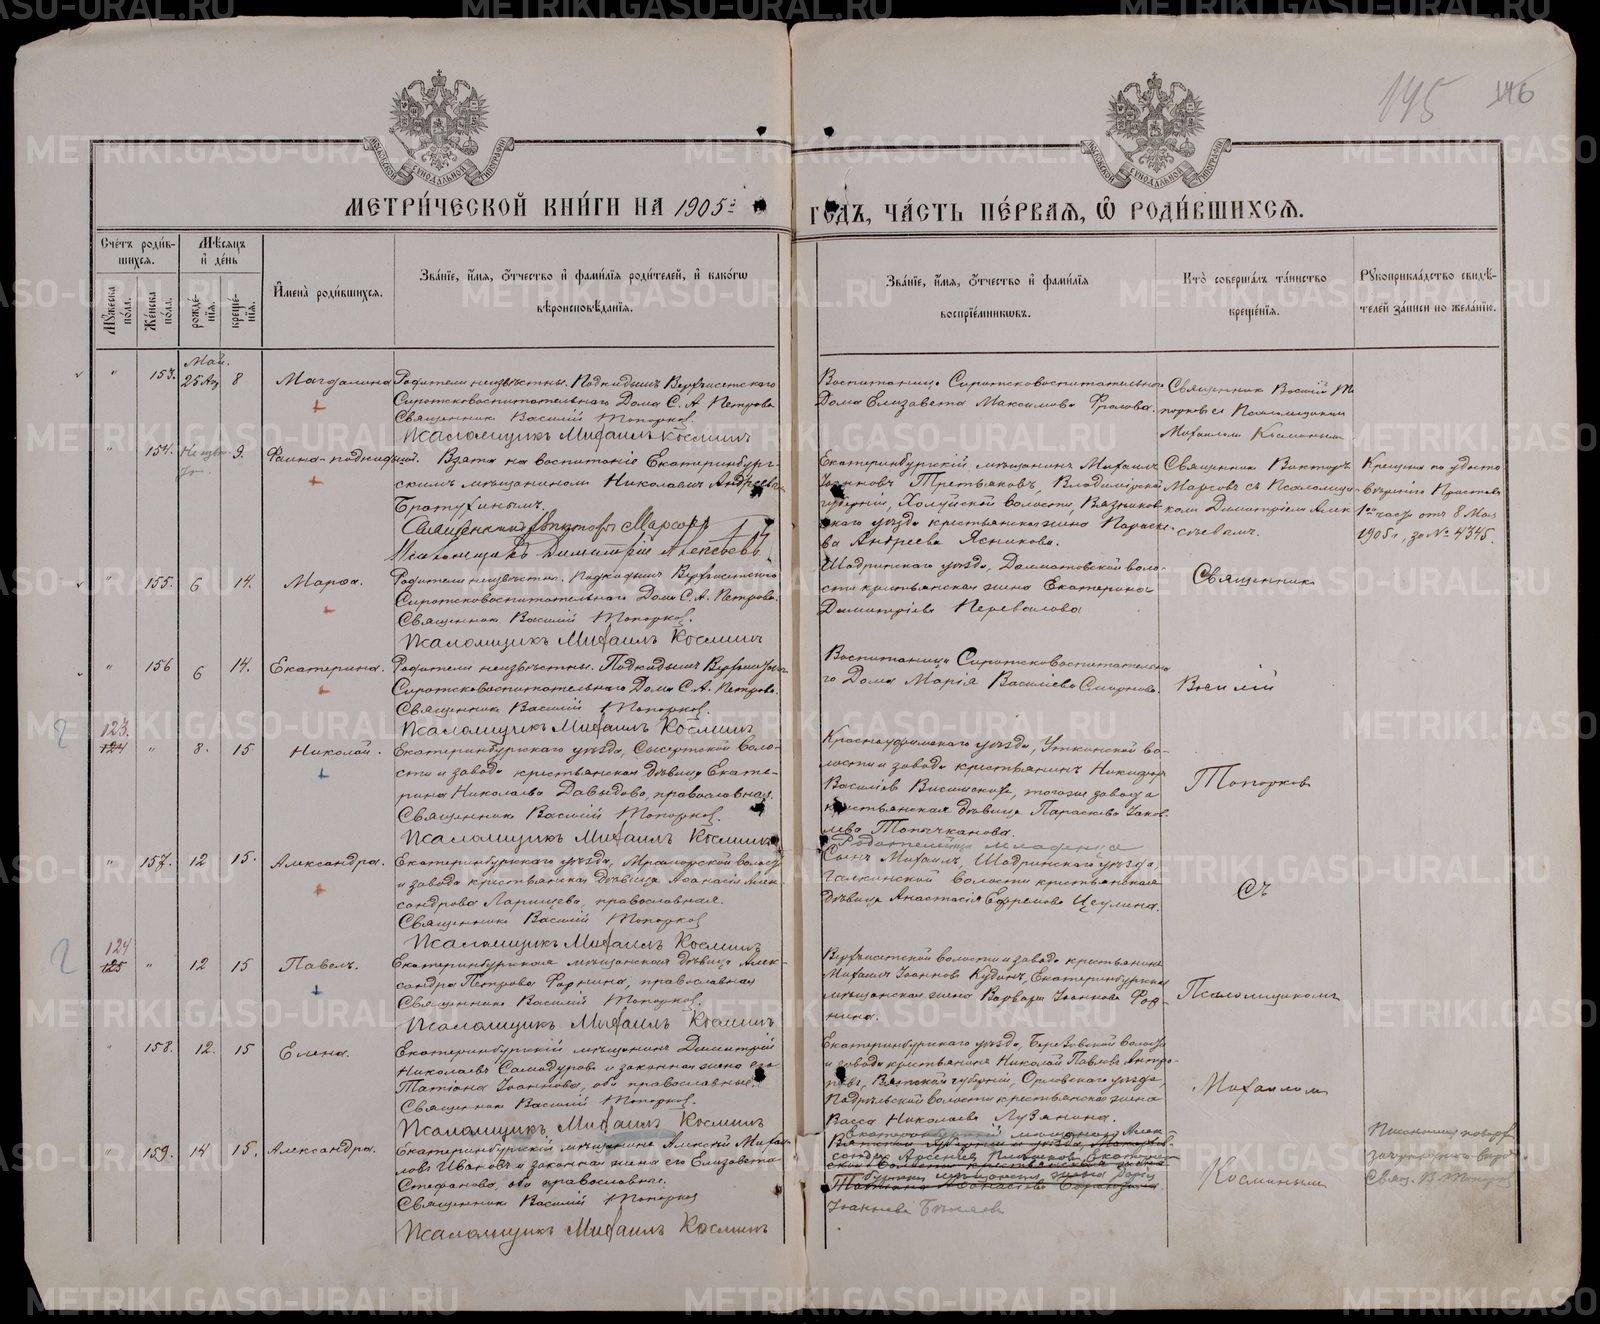 145 146
МЕТРИ́ЧЕСКОЙ КНИ́ГИ НА 1905й
ГОДЪ, ЧА́СТЬ ПЕ́РВАЯ, Ѿ РОДИ́ВШИХСЯ.
Сче́тъ роди́в-
шихся.
Му́жеска по́ла.
Же́нска по́ла.
Мѣ́сяцъ и де́нь
рожде́нїя.
креще́нїя.
Имена̀ роди́вшихся.
Зва́нїе, и́мя, о́тчество и фами́лїя роди́телей, и како́гѡ
вѣроисповѣ́данїя.
Зва́нїе, и́мя, о́тчество и фами́лїя
воспрїе́мникѡвъ.
Кто̀ соверша́лъ та́инство
креще́нїя.
Рукоприкла́дство свидѣ́-
телей за́писи по жела́нїю.
" 153. Май. 25 Ап 8 Магдалина
Родители неизвѣстны. Подкидышъ Верхъисетскаго
Сиротсковоспитательнаго Дома С. А. Петрова
Священникъ Василій Топорковъ
Псаломщикъ Михаилъ Косминъ
Воспитаница Сиротсковоспитательнаго
Дома Елизавета Максимова Фролова.
Священникъ Василій То
порковъ съ Псаломщикомъ
Михаиломъ Косминымъ
" 154. Неизвѣ- 9. Фаина-подкидышъ. Взята на воспитаніе Екатеринбург-
скимъ мѣщаниномъ Николаемъ Андреевымъ
Братухинымъ.
Священникъ Викторъ Марсовъ
Псаломщикъ Димитрій Алексѣевъ
Екатеринбургскій мѣщанинъ Михаилъ
Іоанновъ Третьяковъ, Владимірской
губерніи, Холуйской волости, Вязников-
скаго уѣзда крестьянская жена Параске-
ва Андреева Ясникова.
Священникъ Викторъ
Марсовъ съ Псаломщи-
комъ Димитріемъ Алек
сѣевымъ.
Крещена по удосто
вѣренію Пристава
1й части отъ 8 Мая
1905 г., за № 4345.
" 155. 6 14. Марѳа.
Родители неизвѣстны. Подкидышъ Верхъисетскаго
Сиротсковоспитательнаго Дома С. А. Петрова.
Священникъ Василій Топорковъ.
Псаломщикъ Михаилъ Косминъ
Шадринскаго уѣзда, Далматовской воло-
сти крестьянская жена Екатерина
Димитріева Перевалова
Священникъ
" 156 6 14. Екатерина.
Родители неизвѣстны. Подкидышъ Верхъисетска-
Сиротсковоспитательнаго Дома С. А. Петрова.
Священникъ Василій Топорковъ.
Псаломщикъ Михаилъ Косминъ
Воспитаница Сиротсковоспитательна
го Дома Марія Василіева Смирнова.
Василій
123.
124 " 8. 15 Николай.
Екатеринбургскаго уѣзда, Сысертской воло-
сти и завода крестьянская дѣвица Екате-
рина Николаева Давыдова, православная.
Священникъ Василій Топорковъ.
Псаломщикъ Михаилъ Косминъ
Красноуфимскаго уѣзда, Уткинской во-
лости и завода крестьянинъ Никифоръ
Василіевъ, тогоже завода
крестьянская дѣвица Параскева Іаков
лева Топычканова.
Топорковъ
" 157. 12 15. Александра.
Екатеринбургскаго уѣзда, Мраморской волости
и завода крестьянская дѣвица Аѳанасія Алек-
сандрова Ларищева, православная.
Священникъ Василій Топорковъ
Псаломщикъ Михаилъ Косминъ
Родительница младенца
Сынъ Михаилъ, Шадринскаго уѣзда,
Галкинской волости крестьянская
дѣвица Анастасія Ефремова Цеулина.
Съ
124
125 " 12 15 Павелъ.
Екатеринбургская мѣщанская дѣвица Алек-
сандра Петрова Форнина, православная
Священникъ Василій Топорковъ.
Псаломщикъ Михаилъ Косминъ
Верхъисетской волости и завода крестьянинъ
Михаилъ Іоанновъ Кудинъ, Екатеринбургская
мѣщанская жена Варвара Іоаннова Фор-
нина.
Псаломщикомъ
" 158. 12. 15 Елена.
Екатеринбургскій мѣщанинъ Димитрій
Николаевъ Самодуровъ и законная жена его
Татіана Іоаннова, оба православные.
Священникъ Василій Топорковъ.
Псаломщикъ Михаилъ Косминъ
Екатеринбургскаго уѣзда, Березовской волости
и завода крестьянинъ Николай Павловъ Антро-
повъ, Вятской губерніи, Орловскаго уѣзда,
Подрѣльской волости крестьянская жена
Васса Николаева Лузянина.
Михаиломъ
" 159. 14 15. Александра.
Екатеринбургскій мѣщанинъ Алексій Михаи
ловъ Ивановъ и законная жена его Елизавета
Стефанова, оба православные.
Священникъ Василій Топорковъ
Псаломщикъ Михаилъ Косминъ
Екатеринбургскій мѣщанинъ Алек
сандръ Арсеніевъ
Іоаннова Бѣляева
Косминымъ
Свящ. В. Топорковъ
METRIKI.GASO-URAL.RU